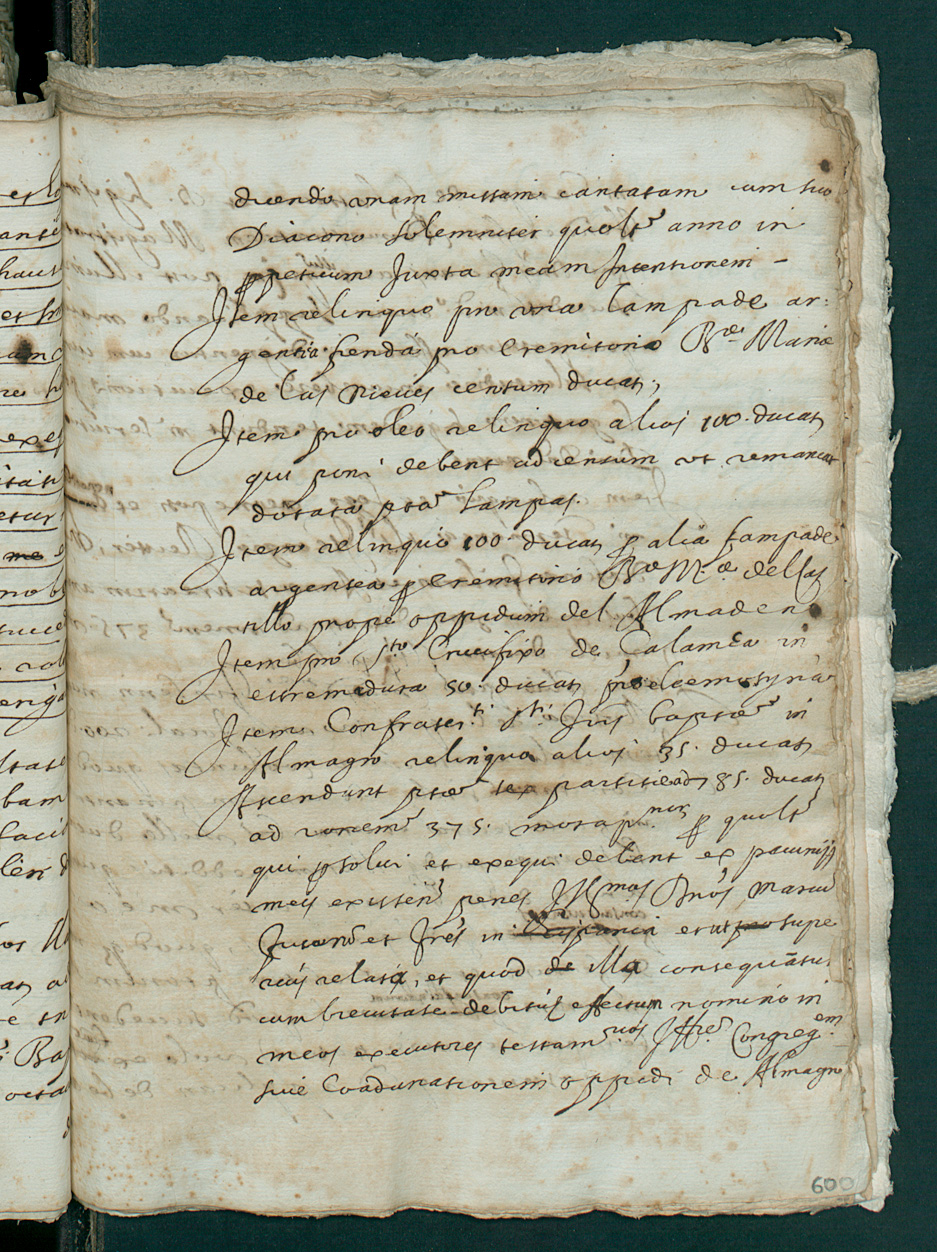 dicendo unam missam cantatam cum suo
Diacono solemniter quolt anno in
ppetuum Juxta meam Intentionem -
Item relinquo pro una lampade ar:
gentea fienda pro Eremitorio Bæ Mariæ
de las Nieves centum ducat;
Item pro oleo relinquo alios 100. ducat
qui poni debent ad censum ut remaneat
dotata pta lampas.
Item relinquo 100 ducat p alia lampade
argentea p Eremitorio Bæ Mæ del Cas
tillo prope oppidum del Almaden
Item pro Sto Crucifixo de Calamea in
estremadura 50. ducat pro elemosyna
Item Confrater.ti Sti Jois baptæ in
Almagro relinquo alios 35. ducat
Ascendunt ptæ sex partitæ ad 385. ducat
ad ronem 375. morap.nor p quolt
qui psolvi et exequi debent ex pecunijs
meis existen penes Ill.mos Dnos
et Fres in Hispania et ut supe
rius relata, et quod de illa consequatur
cum brevitate debitus effectum nomino in
meos executores testam.rios Illre Congreg.em
sive Coadunationem oppidi de Almagro
600